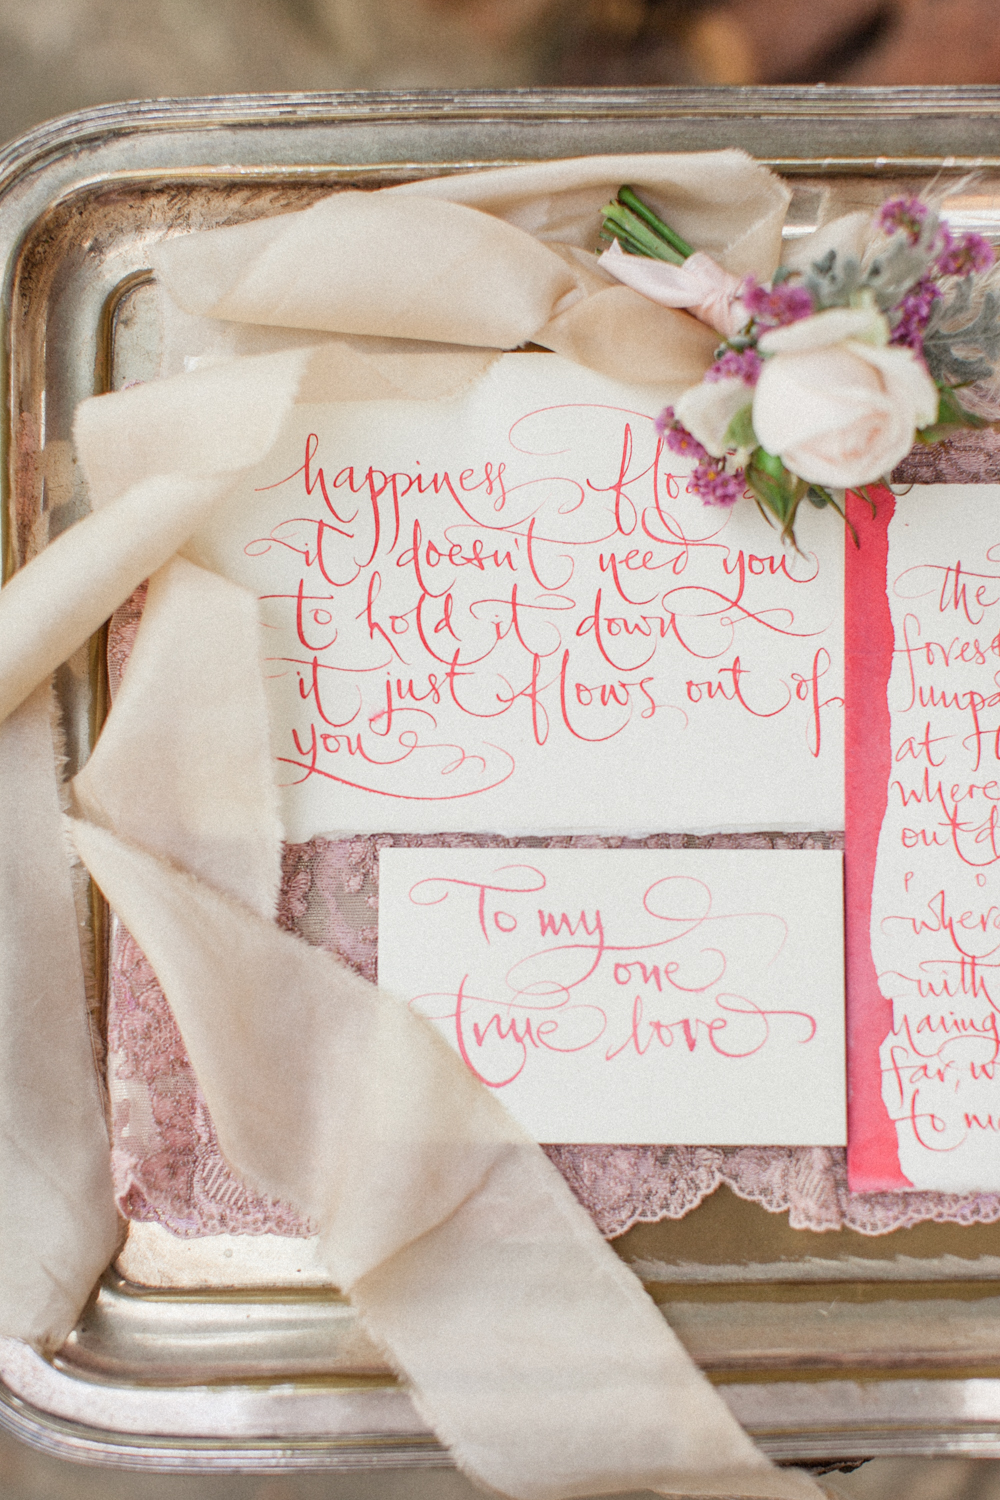 happiness
it doesn't need you
to hold it down
it just flows out of
you
To my
one
true love
the
at
where
out
where
with
far,
to